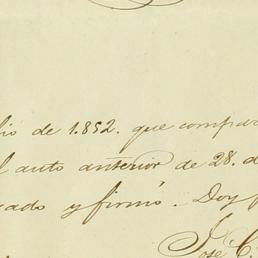 lio de 1.852. que compar
l auto anterior de 28. d
cado y firmó. Doy f
José C.